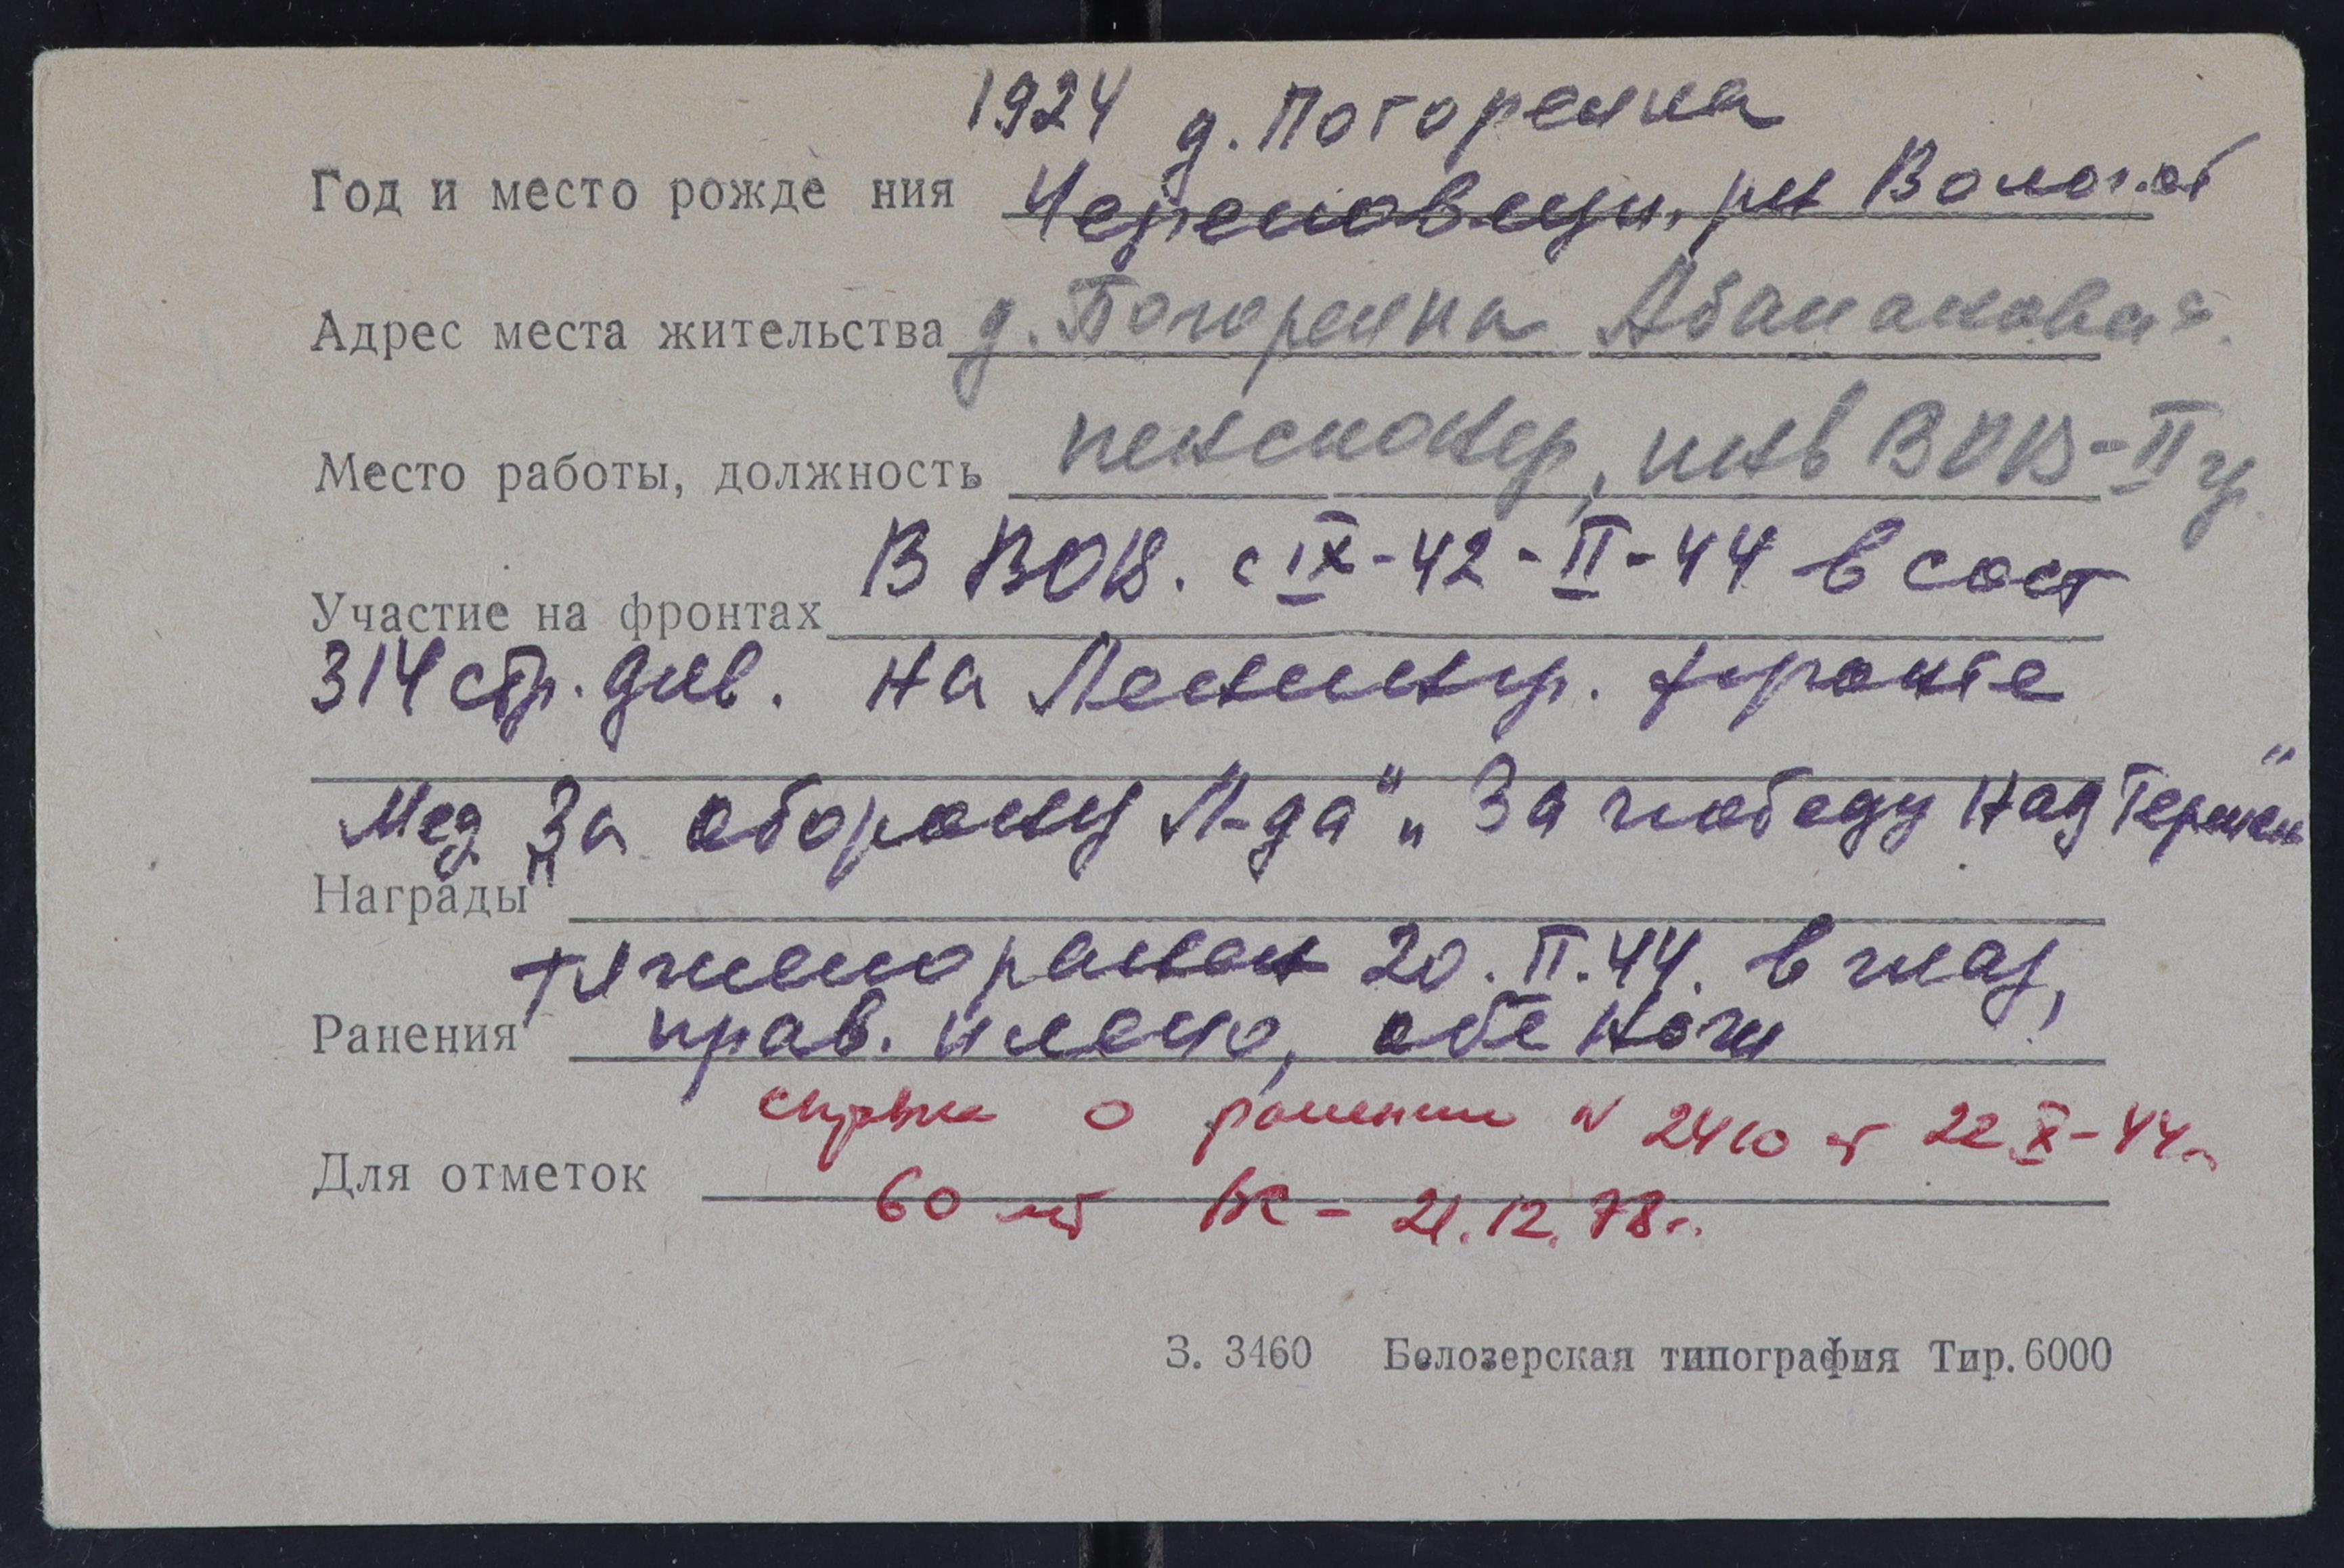 1924 д. Погорелка
Год и место рожде ния Череповецк. р-н Волог. об
Адрес места жительства д. Погорелка Абакановская
Место работы, должность пенсионер, инв ВОВ-II г
В ВОВ. с IX-42-II-44 в сост
Участие на фронтах
314 стр. див. на Ленингр. фронте
Мед „За оборону Л-да" „За победу над Герман"
Награды
тяжело ранен 20.II.44. в глаз,
Ранения прав. плечо, обе ноги
справка о ранении N 2410 от 22.X-44г
Для отметок
60 лет ВС - 21.12.78г.
З. 3460 Белозерская типография Тир. 6000